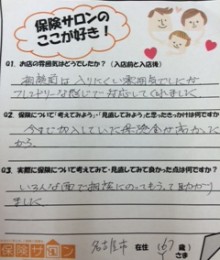 保険サロンの
ここが好き!
Q1. お店の雰囲気はどうでしたか?(入店前と入店後)
相談前は入りにくい雰囲気でしたが
フレンドリーな感じで対応してくれました。
Q2. 保険について「考えてみよう」・「見直してみよう」と思ったきっかけは何ですか
今まで加入していた保険金が高かった
から。
Q3. 実際に保険について考えてみて・見直してみて良かった点は何ですか?
いろんな面で相談にのってもらって助かり
ました。
保険サロン
名古屋市 在住 (67歳) さま